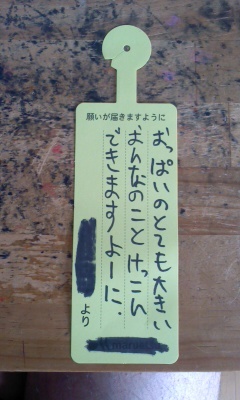 願いが届きますように
おっぱいのとても大きい
おんなのことけっこん
できますよーに.
より